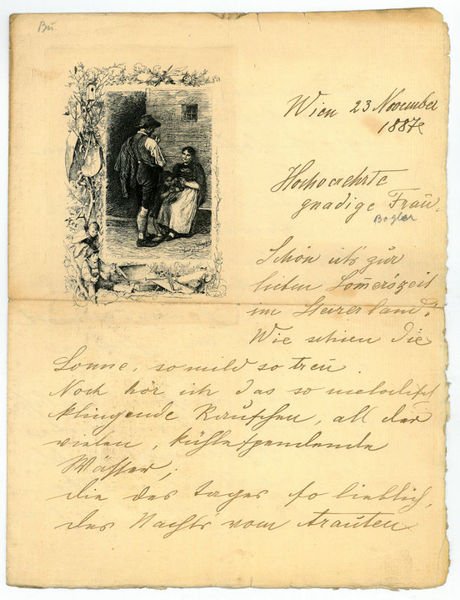 Bu.
Wien 23 November
1887
Hochverehrte
gnädige Frau.
Bogler
Schön ist's zur
lieben Som̅erszeit
im Steierland.
Wie schien die
Sonne, so mild so treu.
Noch hör ich das so melodisch
klingende Rauschen, all der
vielen, kühlespendende
Wässer;
die des Tages so lieblich,
des Nachts vom trauten